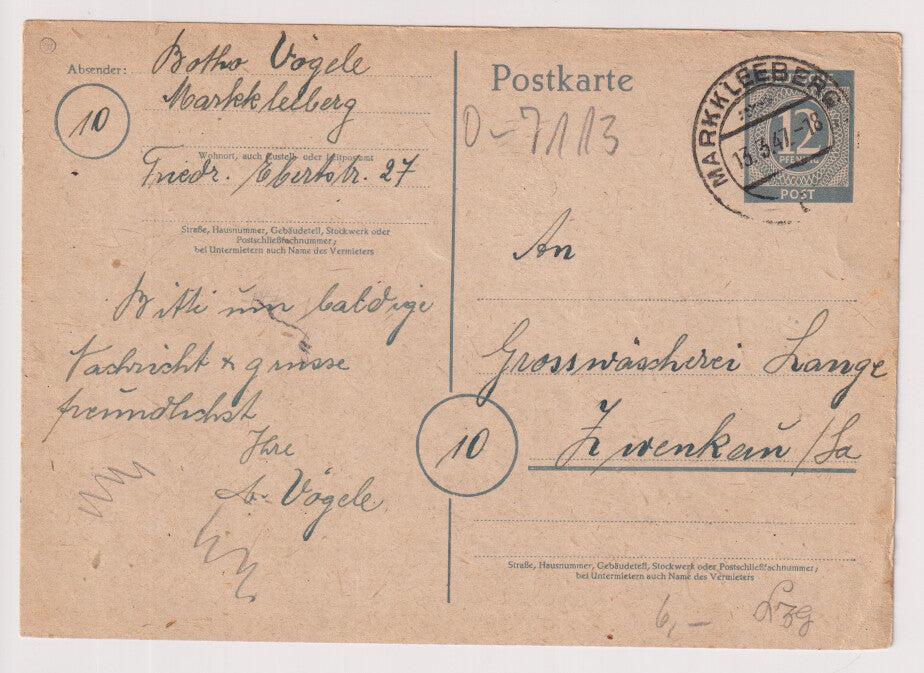 Absender: Botho Vögele
Markkleeberg
10
Wohnort, auch Zustell- oder Leitpostamt
Friedr. Ebertstr. 27
Straße, Hausnummer, Gebäudeteil, Stockwerk oder
Postschließfachnummer;
bei Untermietern auch Name des Vermieters
Bitte um baldige
Nachricht + grüsse
freundlichst
Ihre
Vögele
Postkarte
D-7113
MARKKLEEBERG
13.3.47.-18
12
PFENNIG
POST
An
Grosswäscherei Lange
10
Zwenkau/Sa
Straße, Hausnummer, Gebäudeteil, Stockwerk oder Postschließfachnummer;
bei Untermietern auch Name des Vermieters
6,-